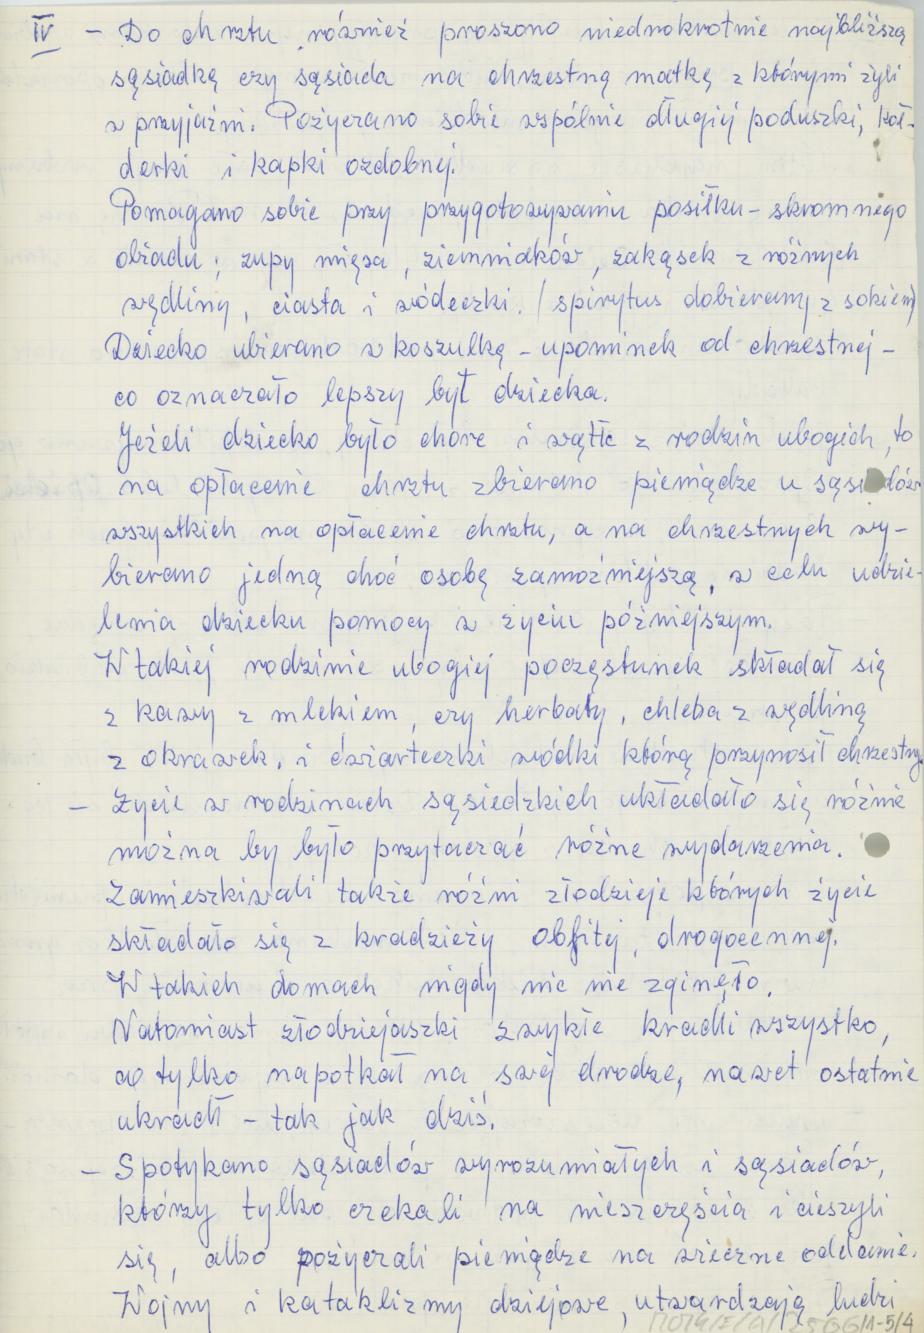 IV – Do chrztu również proszono niednokrotnie najbliższą
sąsiadkę czy sąsiada na chrzestną matkę z którymi żyli
w przyjaźni. Pożyczano sobie wspólnie długiej poduszki, koł-
derki i kapki ozdobnej.
Pomagano sobie przy przygotowywaniu posiłku – skromnego
obiadu; zupy mięsa, ziemniaków, zakąsek z różnych
wędliny, ciasta i wódeczki. (spirytus dobierany z sokiem)
Dziecko ubierano w koszulkę – upominek od chrzestnej –
co oznaczało lepszy był dziecka.
Jeżeli dziecko było chore i wątłe z rodzin ubogich, to
na opłacenie chrztu zbierano pieniądze u sąsiadów
wszystkich na opłacenie chrztu, a na chrzestnych wy-
bierano jedną choć osobę zamożniejszą, w celu udzie-
lenia dziecku pomocy w życiu późniejszym.
W takiej rodzinie ubogiej poczęstunek składał się
z kawy z mlekiem, czy herbaty, chleba z wędliną
z okrawek, i ćwiarteczki wódki którą przynosił chrzestny.
– Życie w rodzinach sąsiedzkich układało się różnie
można by było przytaczać różne wydarzenia.
Zamieszkiwali także różni złodzieje których życie
składało się z kradzieży obfitej, drogocennej.
W takich domach nigdy nic nie zginęło.
Natomiast złodziejaszki zwykłe kradli wszystko,
co tylko napotkał na swej drodze, nawet ostatnie
ukradł – tak jak dziś.
– Spotykano sąsiadów wyrozumiałych i sąsiadów,
którzy tylko czekali na nieszczęścia i cieszyli
się, albo pożyczali pieniądze na wieczne oddanie.
Wojny i kataklizmy dziejowe, utwardzają ludzi